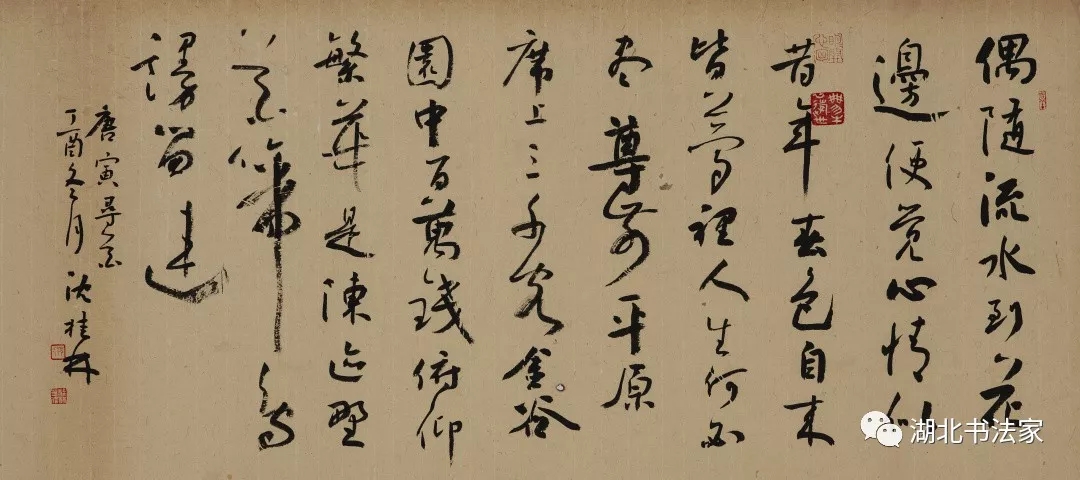 偶随流水到花
邊便觉心情似
昔年春色自来
皆夢裡人生何必
尽尊前平原
席上三千客金谷
園中百萬錢俯仰
繁華是陳迹野
花啼鳥
謾留連
唐寅尋花
丁酉冬月沈桂林
湖北书法家